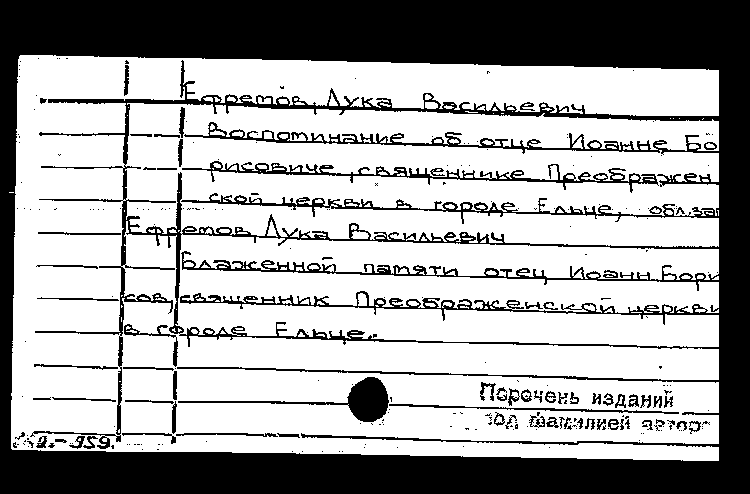 Ефремов, Лука Васильевич
Воспоминание об отце Иоанне Бо
рисовиче, священнике Преображен
ской церкви в городе Ельце, обл.за
Ефремов, Лука Васильевич
Блаженной памяти отец Иоанн Бори
сов, священник Преображенской церкви
в городе Ельце.
Перечень изданий
под фамилией автор
959.